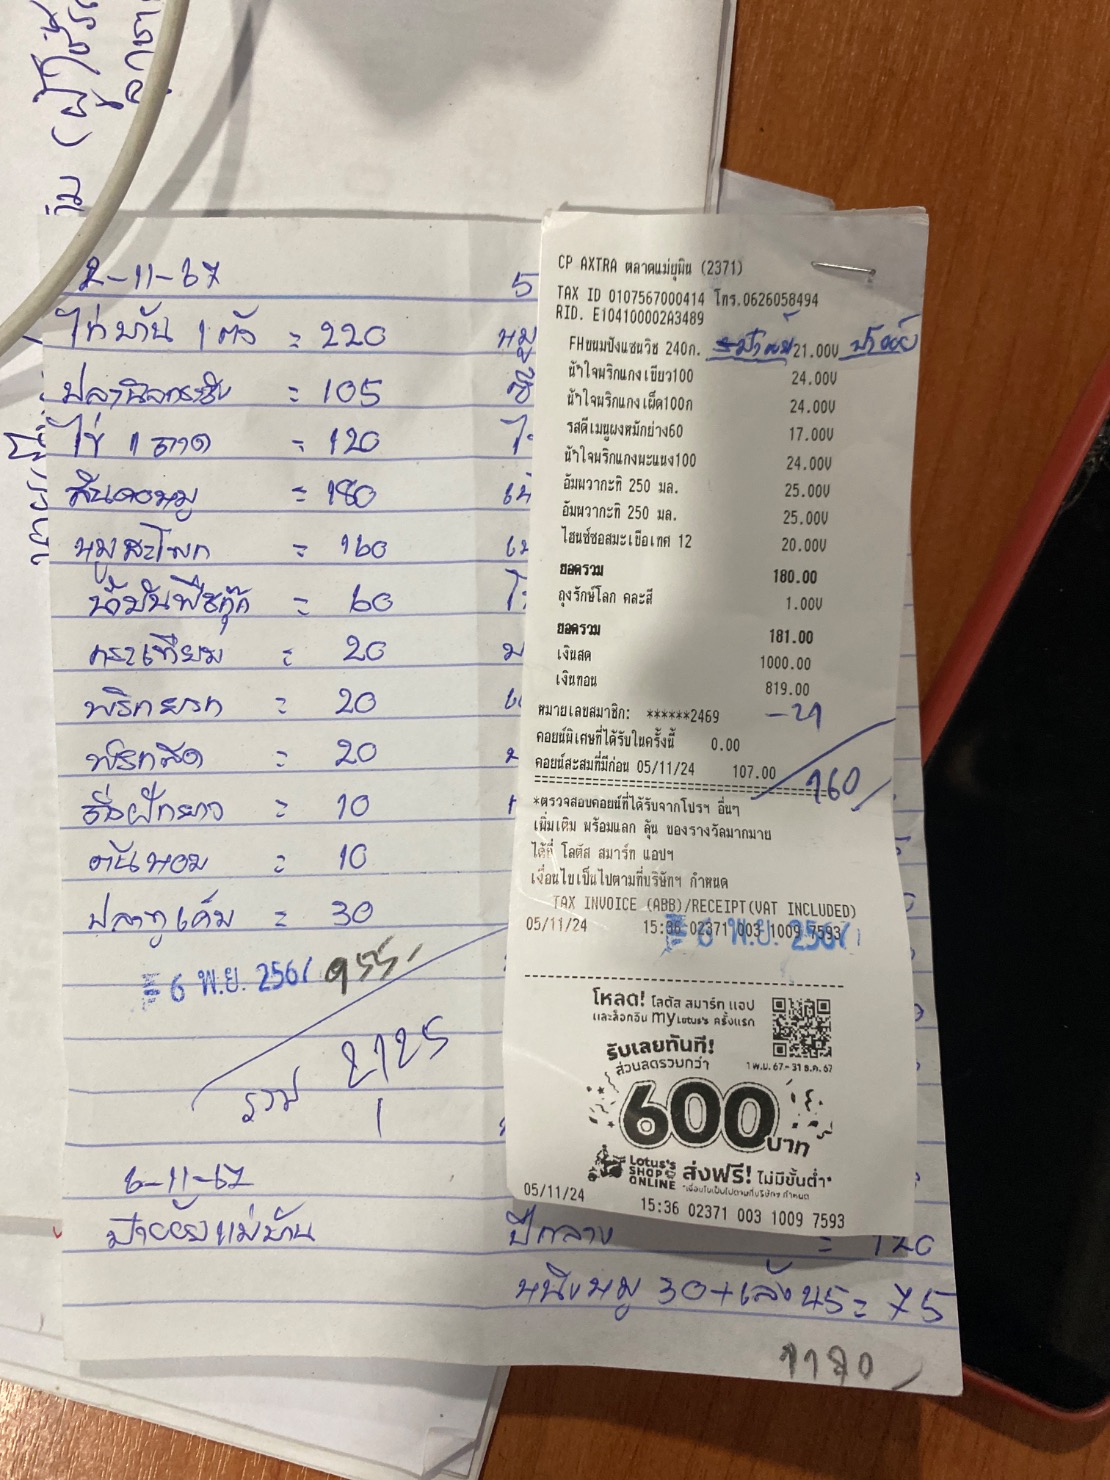 2-11-67
ไก่บ้าน 1 ตัว = 220
ปลานิลกระชัง = 105
ไข่ 1 ถาด = 120
สันคอหมู = 180
หมูสะโพก = 160
น้ำมันพืชกุ๊ก = 60
กระเทียม = 20
พริกยวก = 20
พริกสด = 20
ถั่วฝักยาว = 10
ต้นหอม = 10
ปลาทูเค็ม = 30
6 พ.ย. 2567
955.-
รวม 2125
6-11-67
ป้าย้อยแม่บ้าน
5
หมู
CP AXTRA ตลาดแม่ยุผิน (2371)
TAX ID 0107567000414 โทร.0626058494
RID. E104100002A3489
FHขนมปังแซนวิช 240ก. 21.00V
น้ำใจพริกแกงเขียว100 24.00V
น้ำใจพริกแกงเผ็ด100ก 24.00V
รสดีเมนูผงหมักย่าง60 17.00V
น้ำใจพริกแกงพะแนง100 24.00V
อัมพวากะทิ 250 มล. 25.00V
อัมพวากะทิ 250 มล. 25.00V
ไฮนซ์ซอสมะเขือเทศ 12 20.00V
ยอดรวม 180.00
ถุงรักษ์โลก คละสี 1.00V
ยอดรวม 181.00
เงินสด 1000.00
เงินทอน 819.00
หมายเลขสมาชิก: ******2469 -21
คอยน์พิเศษที่ได้รับในครั้งนี้ 0.00
คอยน์สะสมที่มีก่อน 05/11/24 107.00
160
*ตรวจสอบคอยน์ที่ได้รับจากโปรฯ อื่นๆ
เพิ่มเติม พร้อมแลก ลุ้น ของรางวัลมากมาย
ได้ที่ โลตัส สมาร์ท แอปฯ
เงื่อนไขเป็นไปตามที่บริษัทฯ กำหนด
TAX INVOICE (ABB)/RECEIPT(VAT INCLUDED)
05/11/24 15:36 02371 003 1009 7593
6 พ.ย. 2567
โหลด! โลตัส สมาร์ท แอป
และล็อกอิน my Lotus's ครั้งแรก
รับเลยทันที!
ส่วนลดรวมกว่า
1 พ.ย. 67 - 31 ธ.ค. 67
600 บาท
Lotus's SHOP ONLINE ส่งฟรี! ไม่มีขั้นต่ำ*
*เงื่อนไขเป็นไปตามที่บริษัทฯ กำหนด
05/11/24 15:36 02371 003 1009 7593
ปีกกลาง = 120
หนังหมู 30+เล้ง 45 = 75